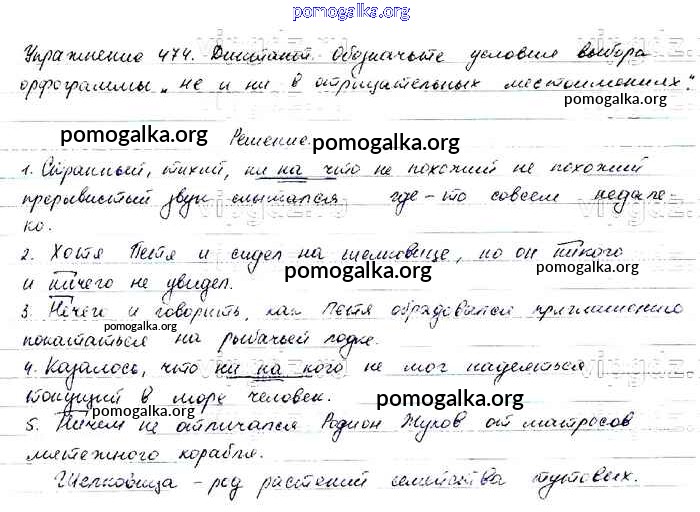 pomogalka.org
Упражнение 474. Диктант. Обозначьте условия выбора
орфограммы „не и ни в отрицательных местоимениях".
pomogalka.org
pomogalka.org Решение. pomogalka.org
1. Странный, тихий, ни на что не похожий не похожий
прерывистый звук слышался где-то совсем недале
ко.
2. Хотя Петя и сидел на шелковице, но он никого
и ничего не увидел. pomogalka.org pomogalka.org
3. Нечего и говорить, как Петя обрадовался приглашению
покататься на рыбачьей лодке.
pomogalka.org
4. Казалось, что ни на кого не мог надеяться
pomogalka.org
тонущий в море человек.
pomogalka.org pomogalka.org
5. Ничем не отличался Родион Жуков от матросов
мятежного корабля.
pomogalka.org
Шелковица - род растений семейства тутовых.